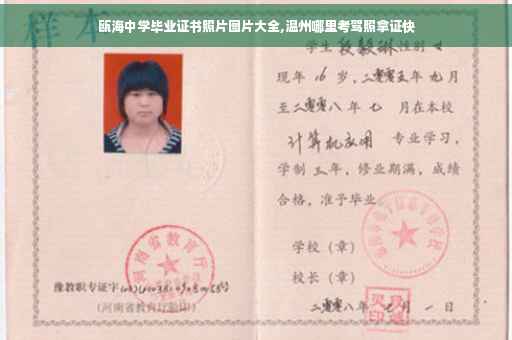 瓯海中学毕业证书照片图片大全,温州哪里考驾照拿证快
样本
学生 段毅琳 性别 女
现年 16 岁,二零零五年 九月
至二零零八年 七 月在本校
计算机应用 专业学习,
学制 三 年,修业期满,成绩
合格,准予毕业
学校(章)
校长(章)
河南省教育厅
豫教职专证字
(河南省教育厅验印)
二零零八年 七 月 一 日